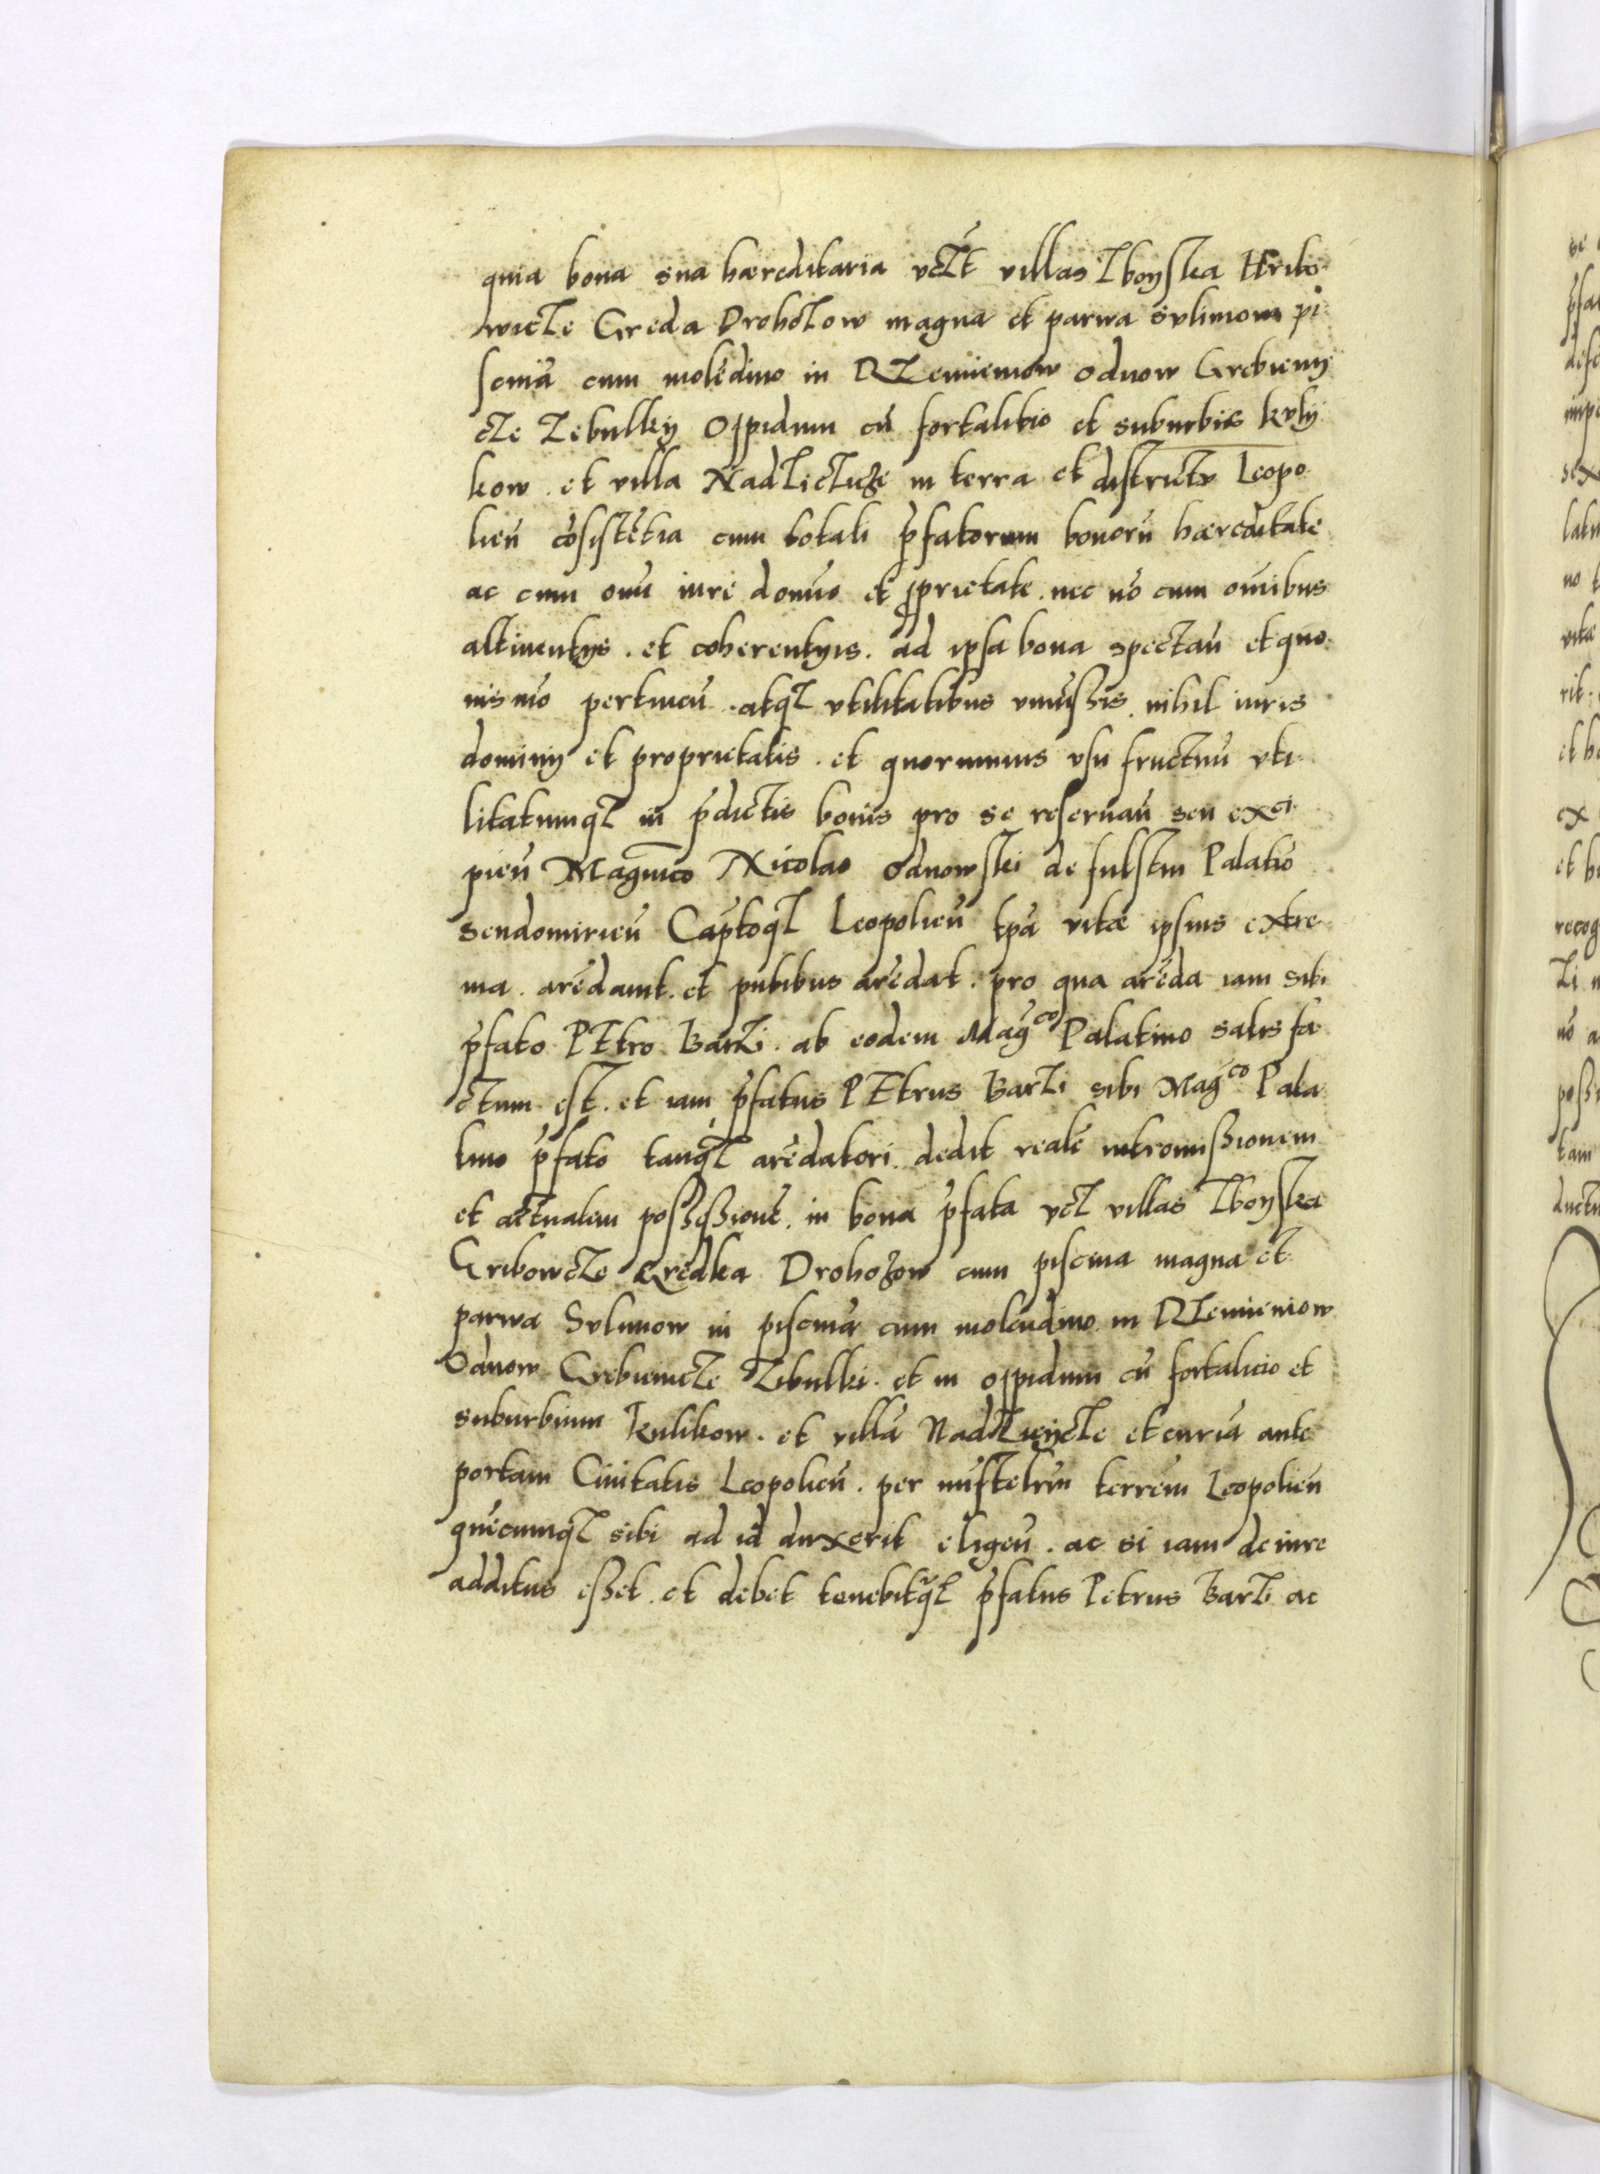 quia bona sua hæreditaria vcꝫt villas Zboyska Hribo
wicze Greda Drohoczow magna et parwa Svlimow pi
scinā cum molēdino in Rzemieniow Odnow Grebieny
cze Zebulky Oppidum cū fortalitio et suburbiis Kuly
kow . et villa Nadziciucze in terra et districtv Leopo
lieñ cōsistētia cum totali p̄fatorum bonorū hæreditate
ac cum om̄i iure dom̄io et ꝓprietate . nec nō cum om̄ibus
attinentys . et coherentyis . ad ipsa bona spectañ et quo
vis mō pertineñ . atqꝫ vtilitatibus vniūßis . nihil iuris
dominy et proprietatis . et quorumuis vsu fructuū vti
litatumqꝫ in p̄dictis bonis pro se reservañ seu exci
pieñ Magnico Nicolao Odnowski de fulstin Palatīo
Sendomirieñ Captoqꝫ Leopolieñ tp̄a vitæ ipsius extre
ma . arēdauit . et pn̄tibus arēdat . pro qua arēda iam sibi
p̄fato PEtro Barzi . ab eodem Mag^co Palatino satis fa
ctum est . et iam p̄fatus PEtrus Barzi sibi Mag^co Pala
tino p̄fato tanqꝫ arēdatori . dedit realē intromißionem
et actualem poßeßionē . in bona p̄fata vcꝫ villas Zboyska
Gribowcze Gredka Drohozow cum piscina magna et
parwa Svlimow in piscinā cum molendino in Rzemieniow
Odnow Grebieincze Zibulki . et in oppidum cū fortalicio et
suburbium Kulikow . et villā Nadzieycze et curiā ante
portam Ciuitatis Leopolieñ . per mīstelrm terrēm Leopolieñ
quēcumqꝫ sibi ad id duxerit eligeñ . ac si iam de iure
additus eßet . et debet tenebitqꝫ p̄fatus Petrus Barzi ac